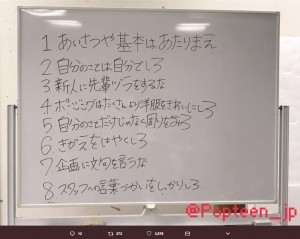 1 あいさつや基本はあたりまえ
2 自分のことは自分でしろ
3 新人に先輩ヅラをするな
4 ポージングはたくさんより洋服をきれいにしろ
5 自分のことだけじゃなく周りをみろ
6 きがえをはやくしろ
7 企画に文句を言うな
8 スタッフへの言葉づかいをしっかりしろ
@Popteen_jp